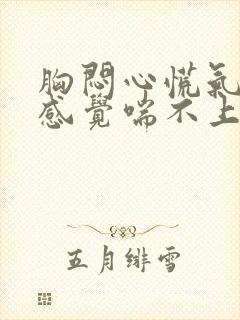 胸悶心慌氣
感覺喘不上
五月緋雪